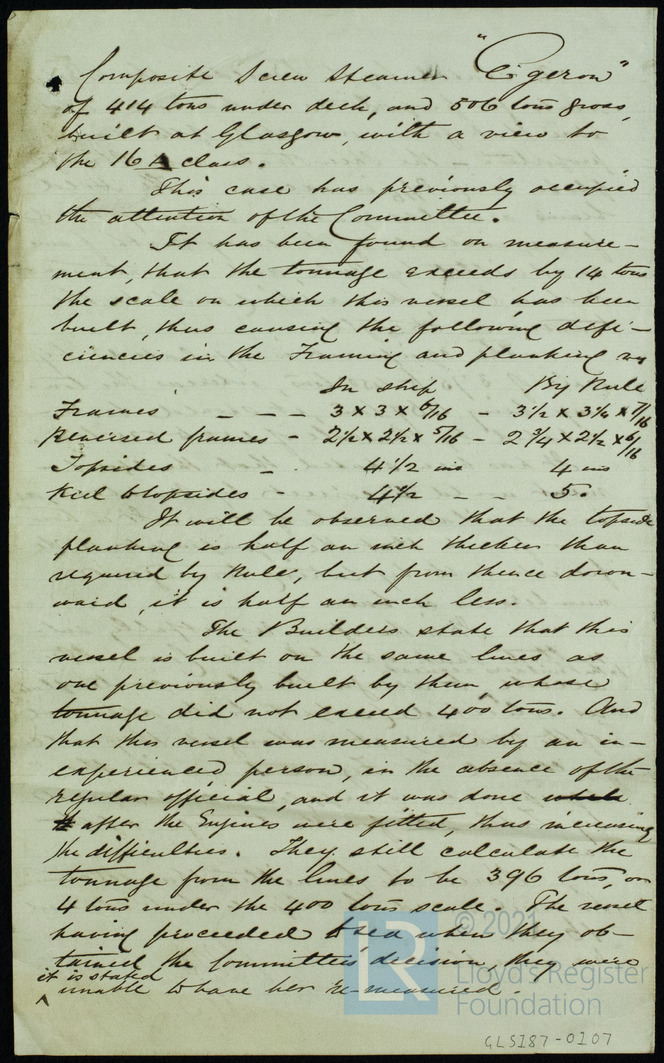 Composite Screw Steamer "Egeron"
of 414 tons under deck, and 506 tons gross,
built at Glasgow, with a view to
the 16 A class.
This case has previously occupied
the attention of the Committee.
It has been found on measure-
ment, that the tonnage exceeds by 14 tons
the scale on which this vessel has been
built, thus causing the following defi-
ciencies in the Framing and planking viz
In ship By Rule
Frames - - - 3 x 3 x 6/16 - 3 1/2 x 3 1/4 x 7/16
Reversed frames - 2 1/2 x 2 1/2 x 5/16 - 2 3/4 x 2 1/2 x 6/16
Topsides - 4 1/2 ins 4 ins
Keel to topsides - 4 1/2 - - 5.
It will be observed that the topside
planking is half an inch thicker than
required by Rule, but from thence down-
ward, it is half an inch less.
The Builders state that this
vessel is built on the same lines as
one previously built by them, whose
tonnage did not exceed 400 tons. And
that this vessel was measured by an in-
experienced person, in the absence of the
regular official, and it was done while
after the Engines were fitted, thus increasing
the difficulties. They still calculate the
tonnage from the lines to be 396 tons, or
4 tons under the 400 tons scale. The vessel
having proceeded to sea when they ob-
tained the Committee's decision, they were
it is stated
^ unable to have her re-measured.
LR
© 2021
Lloyd's Register
Foundation
GLS187-0107